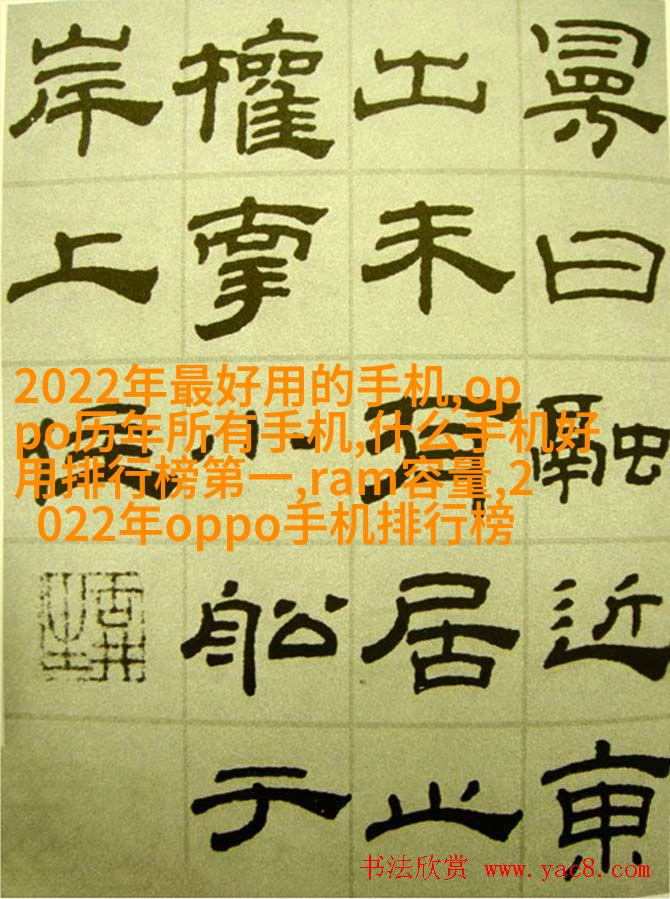 曰融近東
出未有居止
權小船于
岸上
2022年最好用的手机,op
po历年所有手机,什么手机好
用排行榜第一,ram容量,2
022年oppo手机排行榜
书法欣赏 www.yac8.com